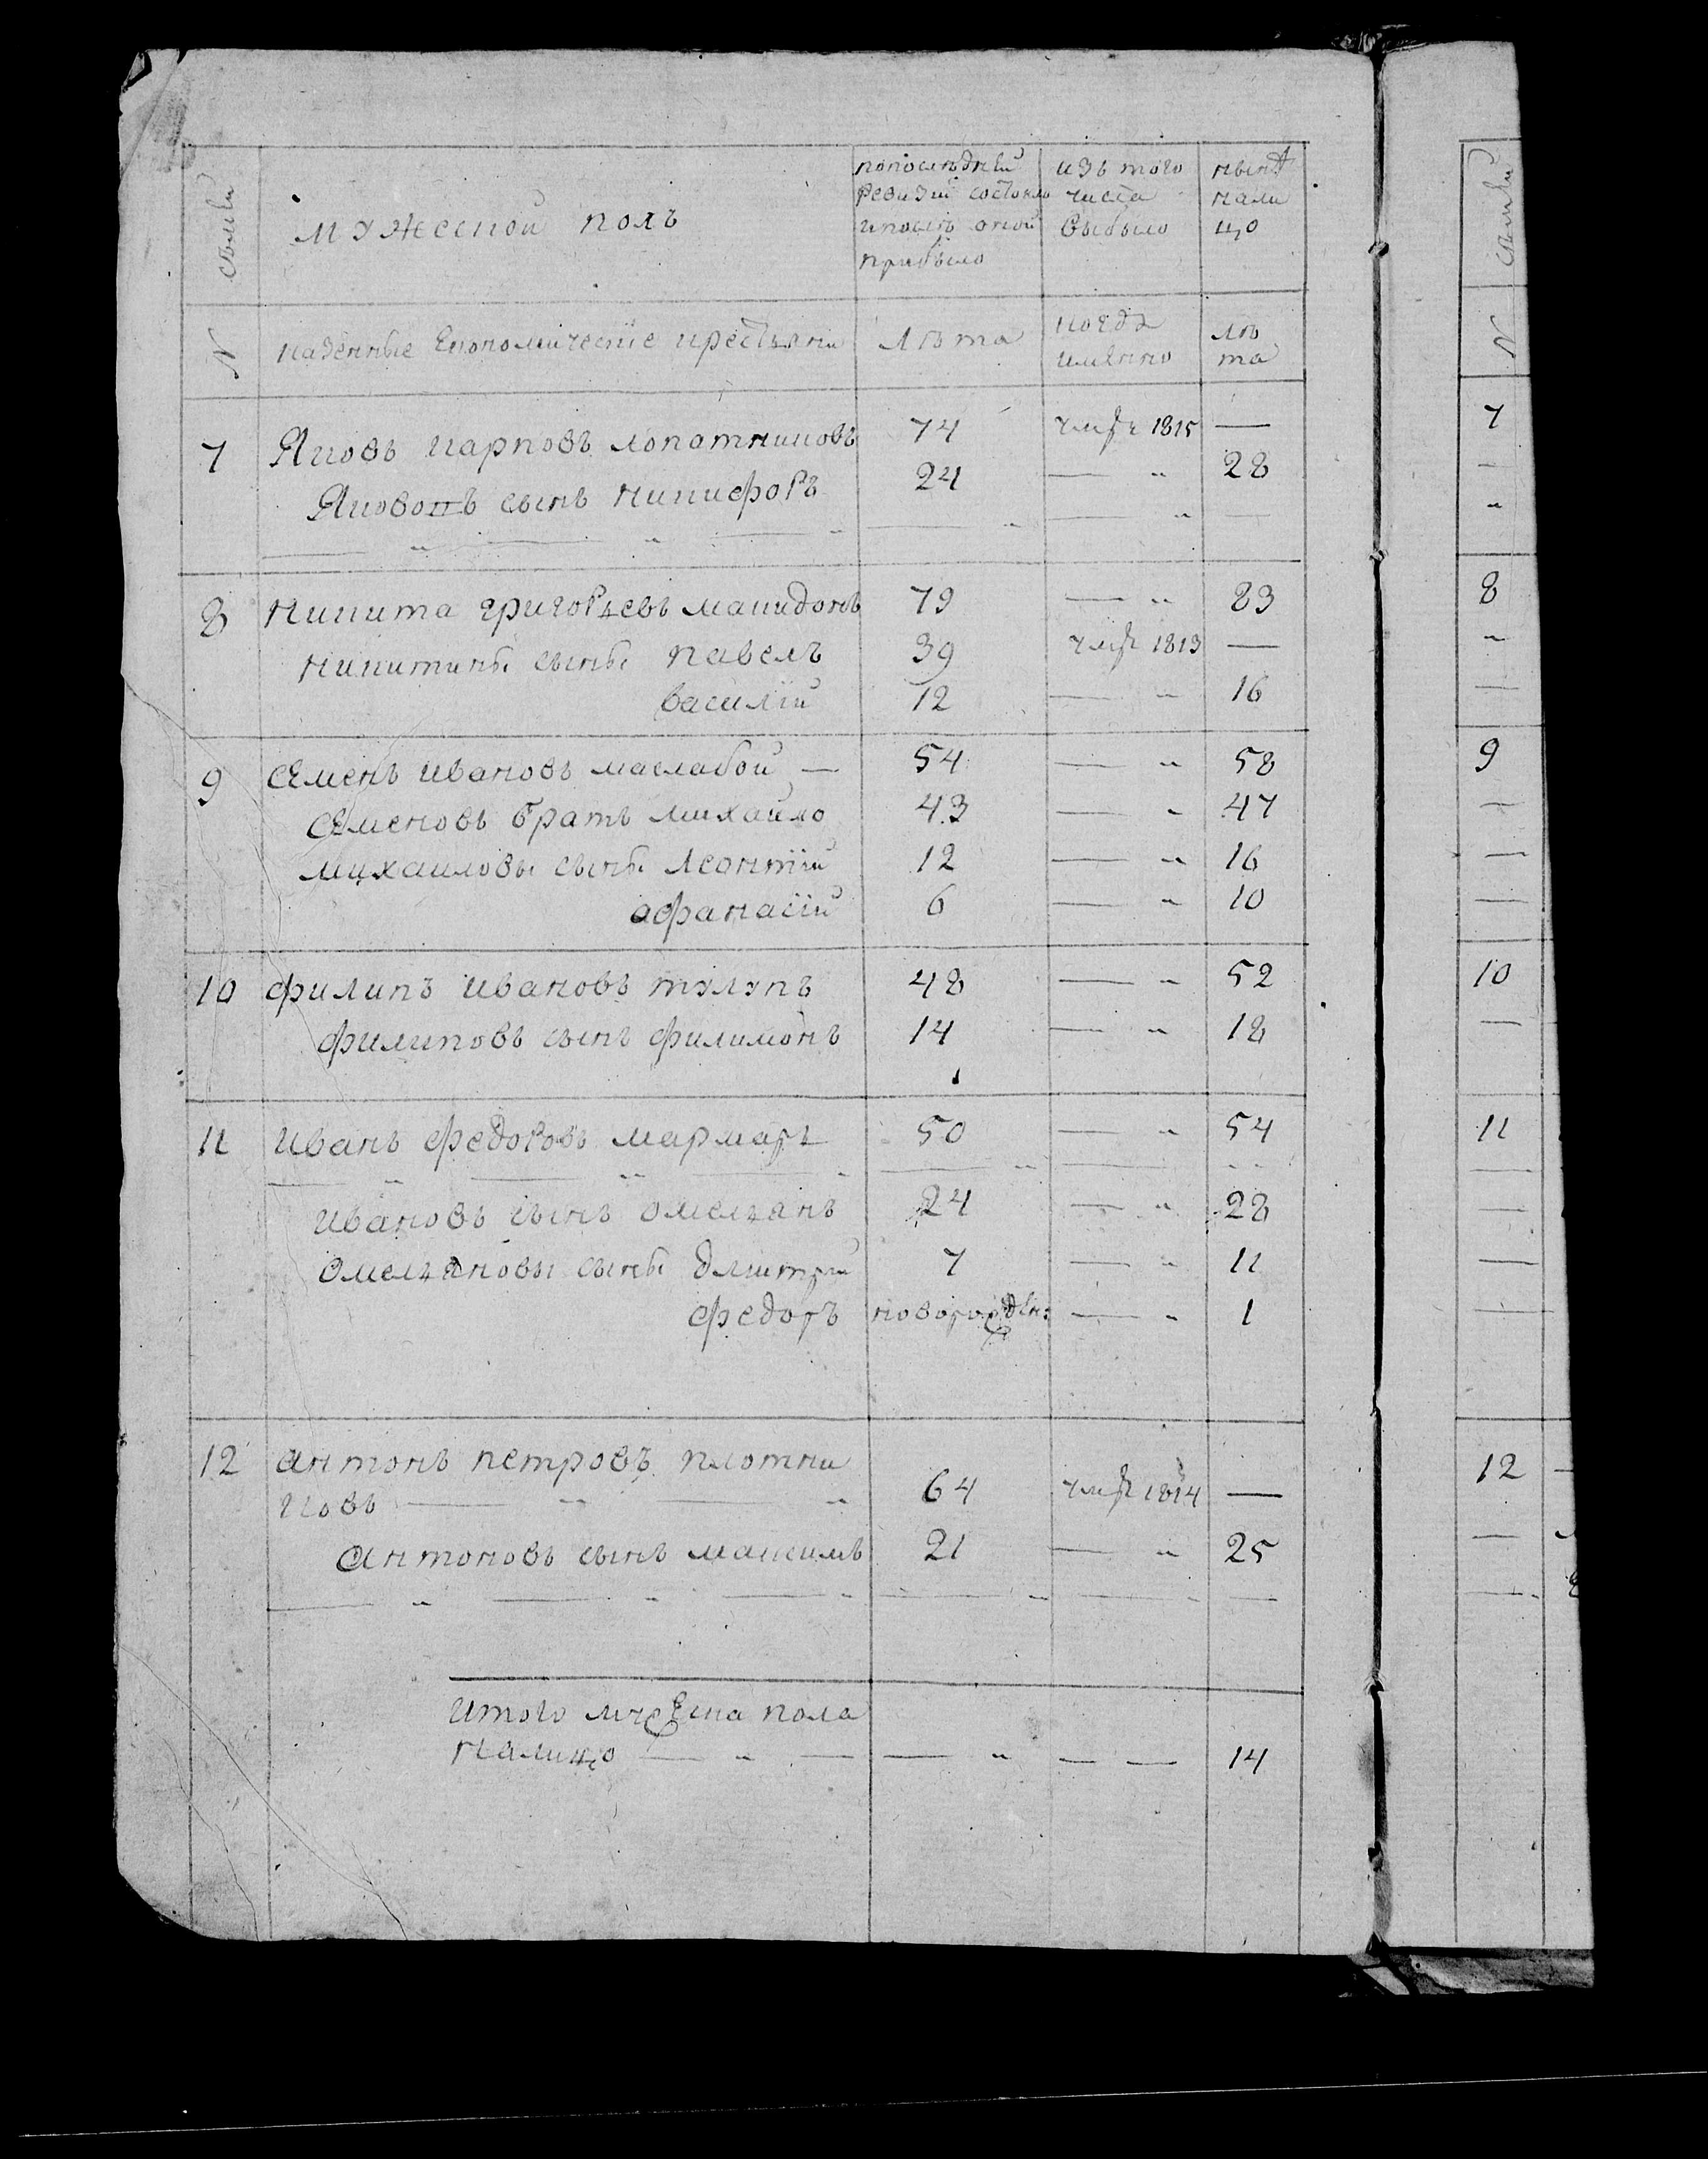 семьи
мужеской полъ
попослѣдней ревизiи состояло ипослѣ оной прибыло
изъ того числа выбыло
нынѣ нали цо
N
казенные Економическiе крестьяне
лѣта
когда имянно
лѣ та
7 Яковъ карповъ лопатниковъ 74 умре 1815 —
Якововъ сынъ никифоръ 24 — " 28
— " — " — " — " — " —
8 никита григорьевъ македонъ 79 — " 83
никитины сыны павелъ 39 умре 1813 —
василiй 12 — " 16
9 Семенъ ивановъ маслабой — 54 — " 58
Семеновъ братъ михайло 43 — " 47
михаиловы сыны леонтiй 12 — " 16
афанасiй 6 — " 10
10 филипъ ивановъ тулупъ 48 — " 52
филиповъ сынъ филимонъ 14 — " 18
11 иванъ федоровъ мармаръ 50 — " 54
— " — " — " — " — " "
ивановъ сынъ омельянъ 24 — " 28
Омельяновы сыны дмитрiй 7 — " 11
федоръ новорожден: — " 1
12 антонъ петровъ плотни
ковъ — " — " 64 умре 1814 —
Антоновъ сынъ максимъ 21 — " 25
— " — " — " — " — " —
итого мужеска пола
налицо — " — — " — — 14
семьи
N
7
—
"
8
"
—
9
—
—
—
10
—
11
—
—
—
—
12 —
—
—